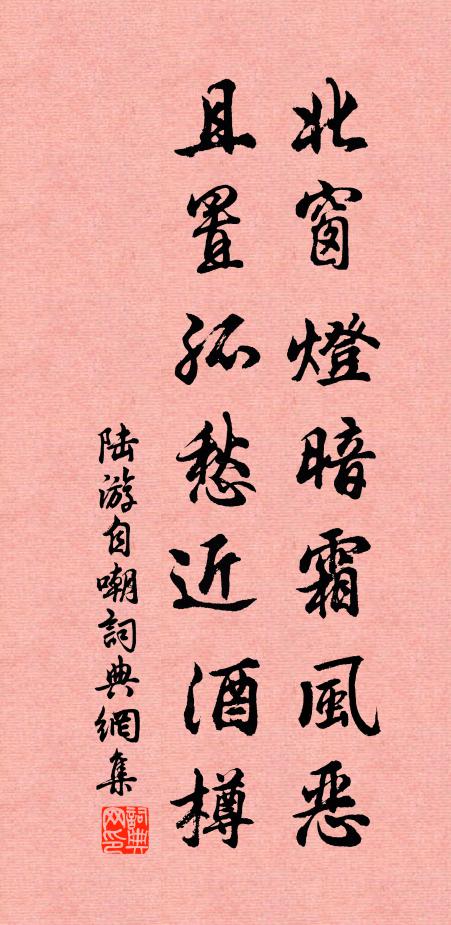 北窗燈暗霜風惡
且置孤愁近酒樽
陆游自嘲詞典網集
詞典网印